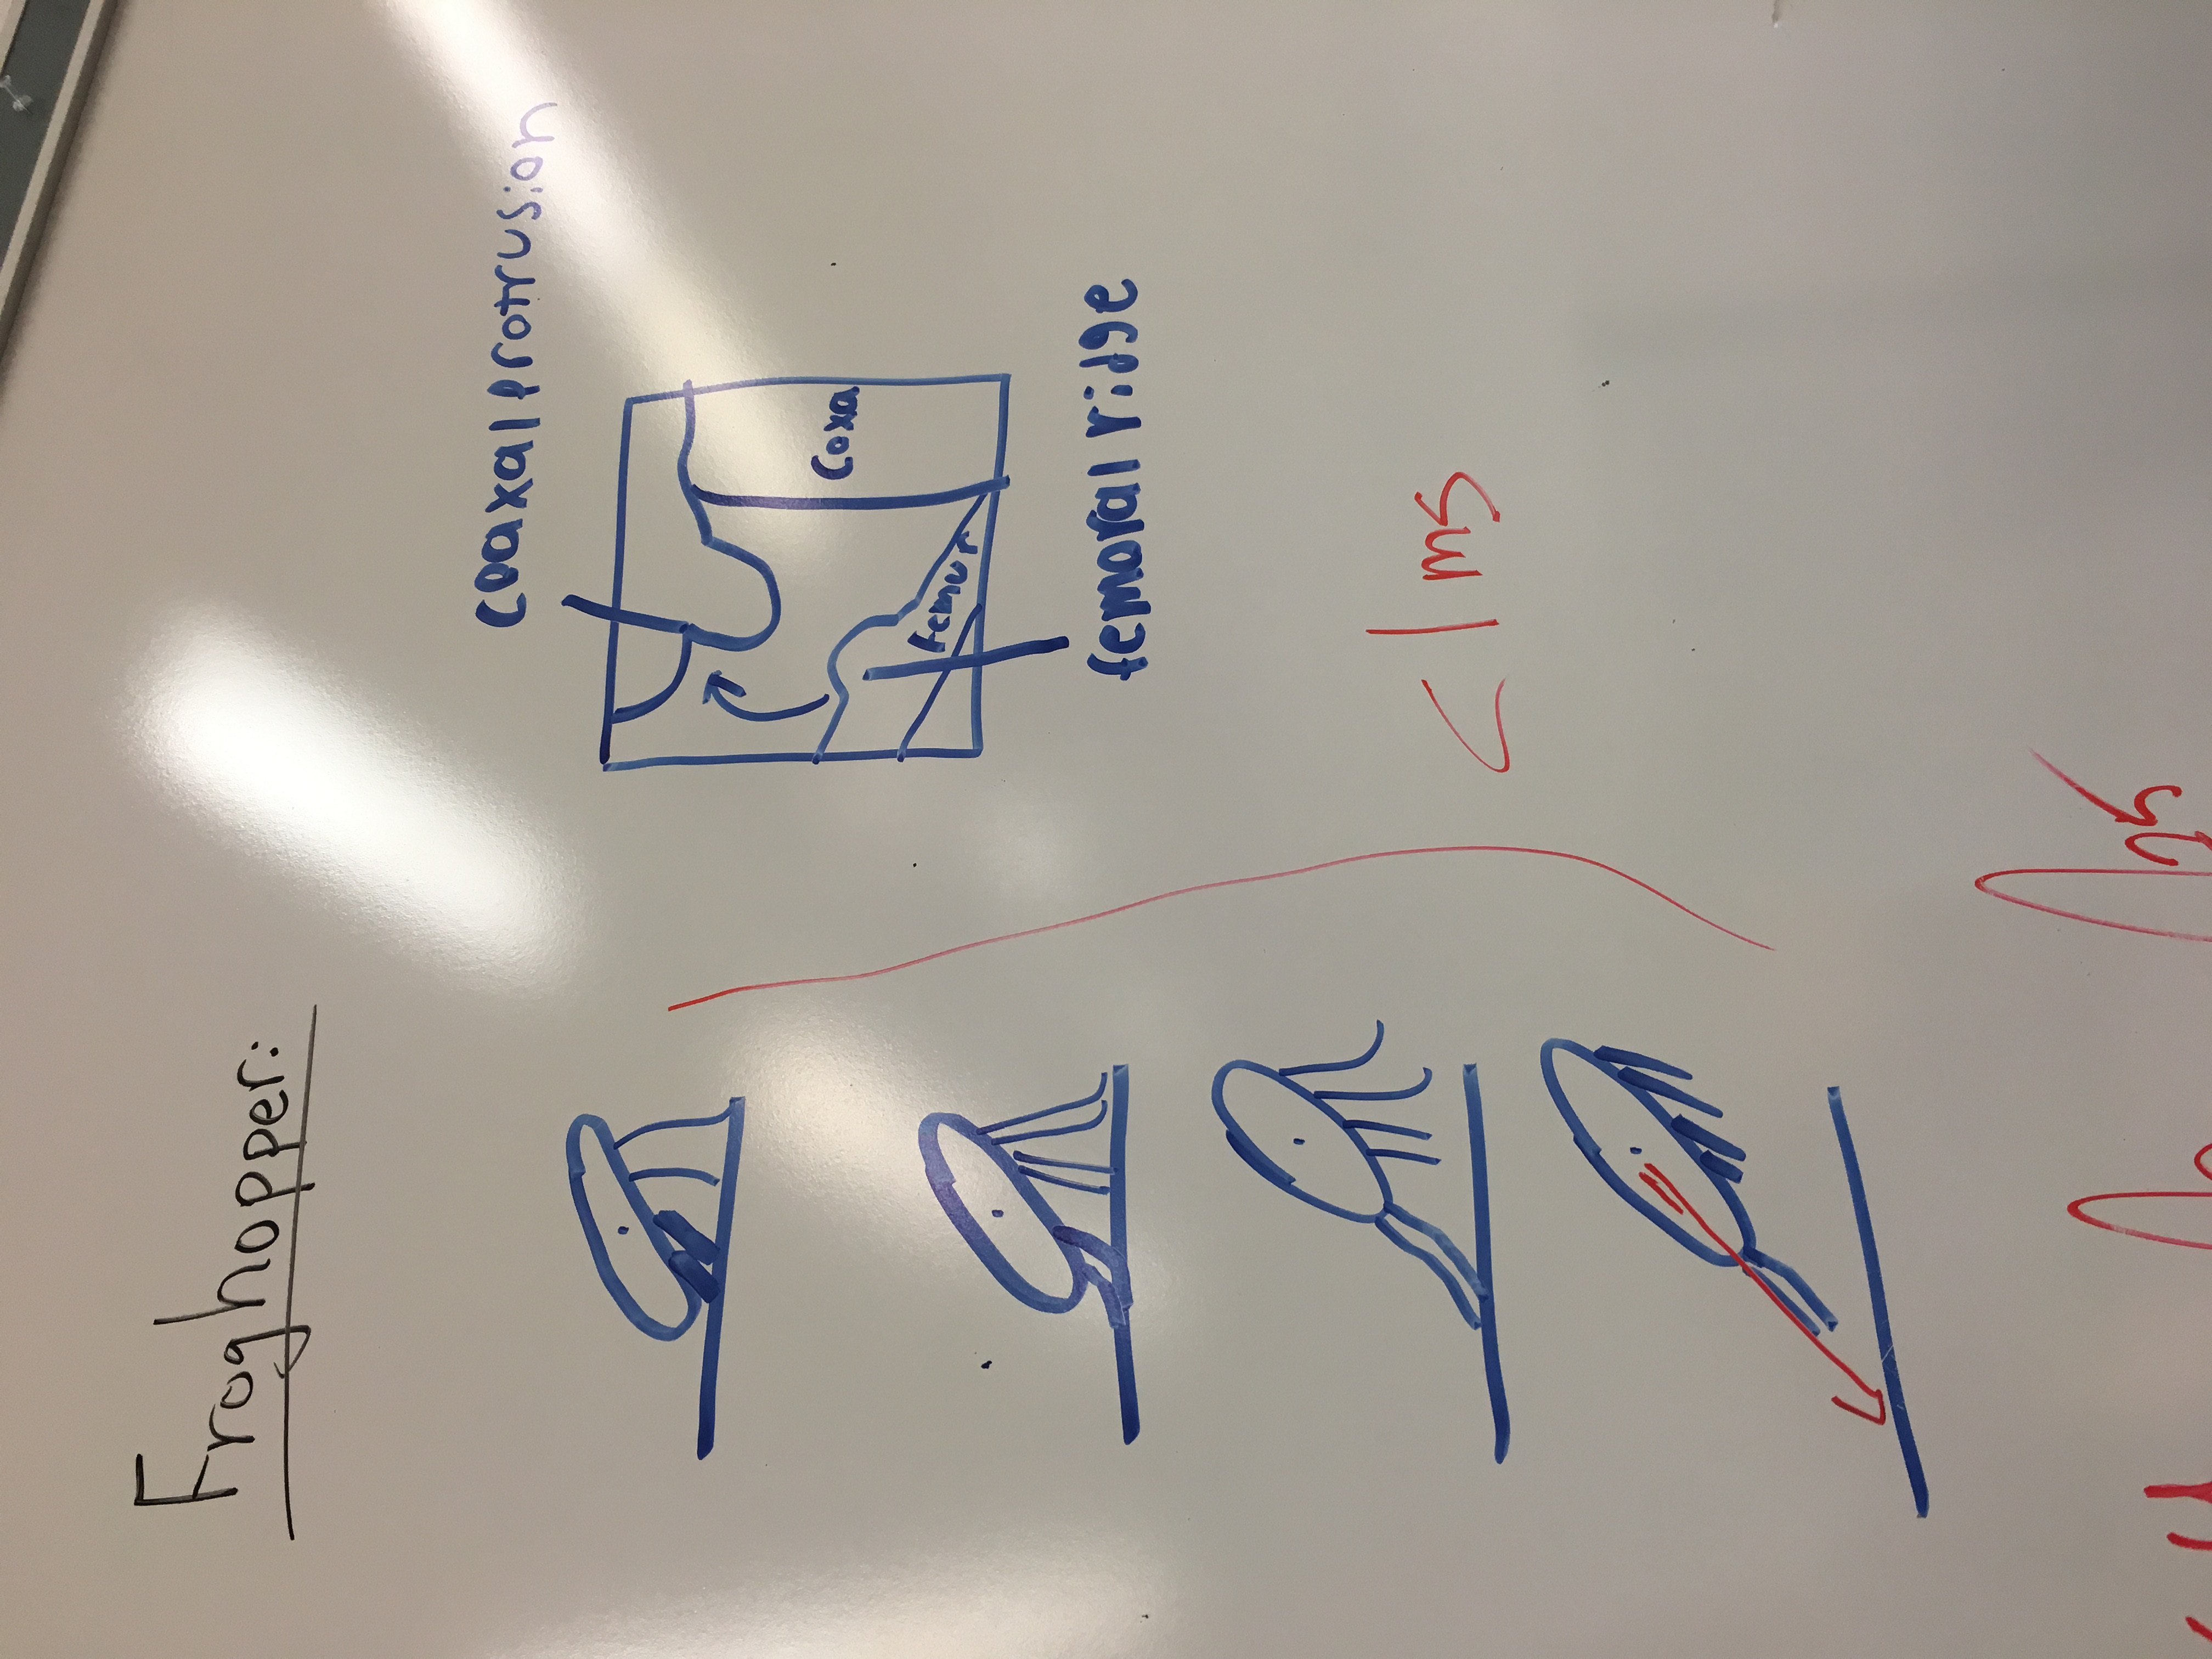 Froghopper:
coaxal protrusion
Coxa
femur
femoral ridge
<1 ms